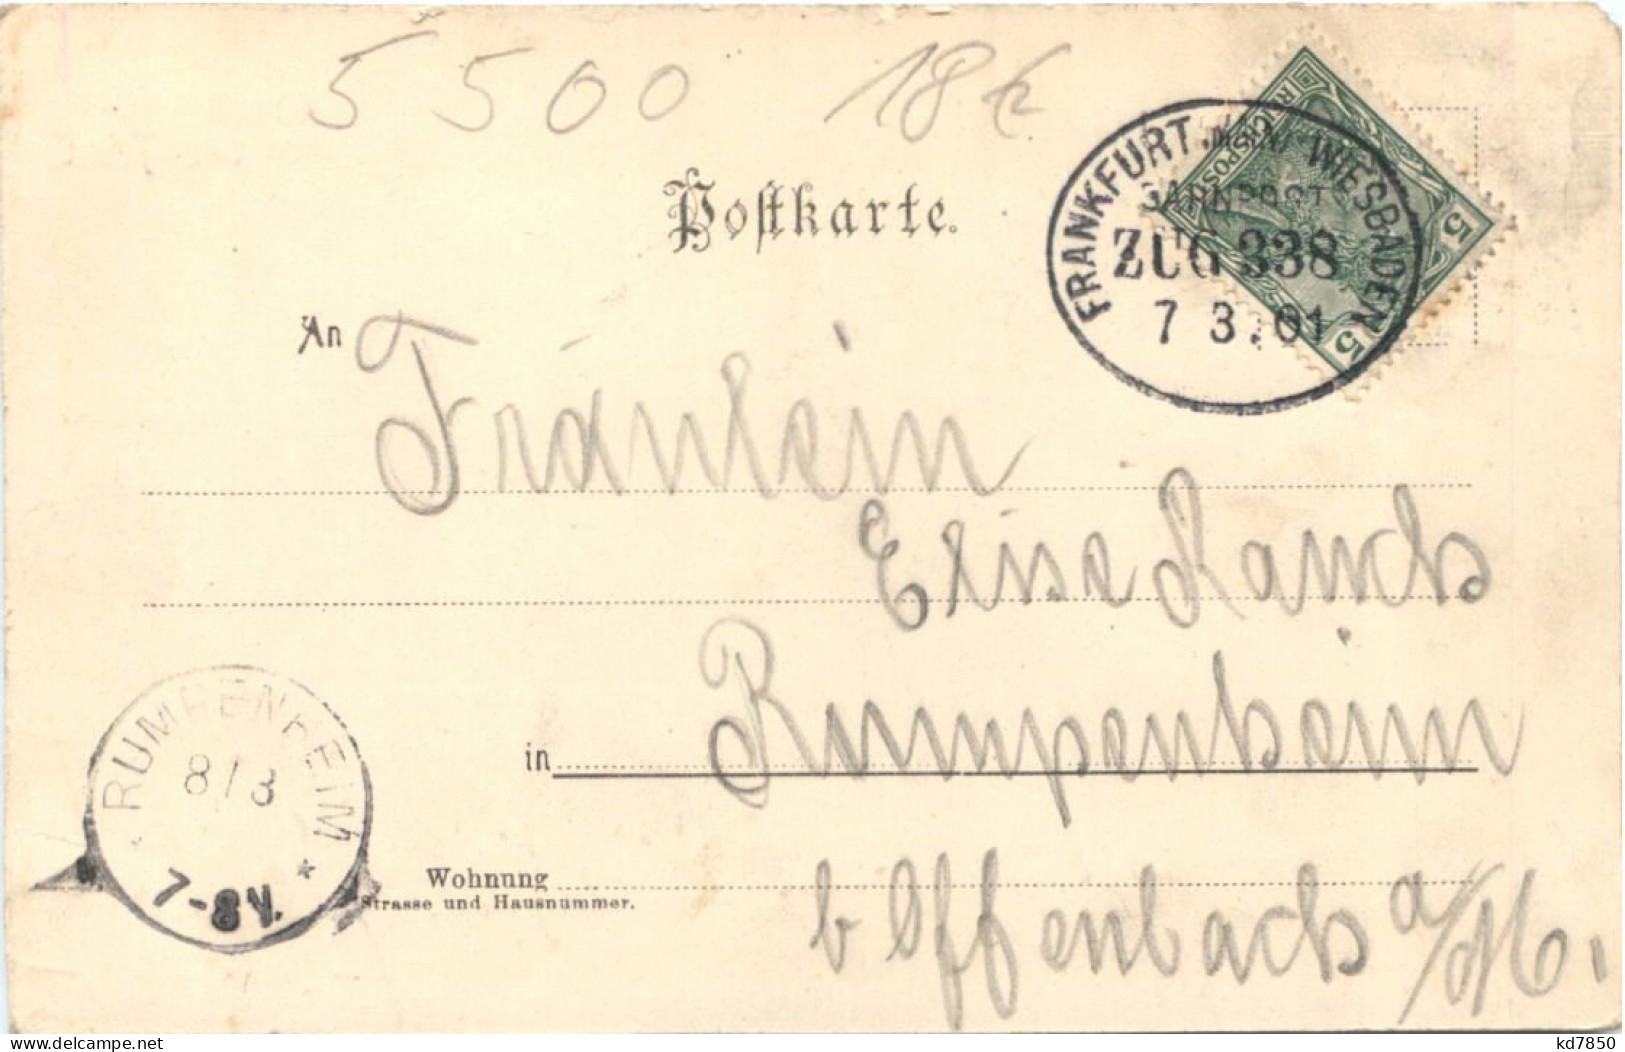 5500 18€
Postkarte.
FRANKFURT WIESBADEN
BAHNPOST
ZUG 338
7 3.01
REICHSPOST
5 5
An Fräulein
Elise Rauch
in Rumpenheim
RUMPENHEIM
8/3
7-8V.
Wohnung
Strasse und Hausnummer.
b Offenbach a/M.
kd7850